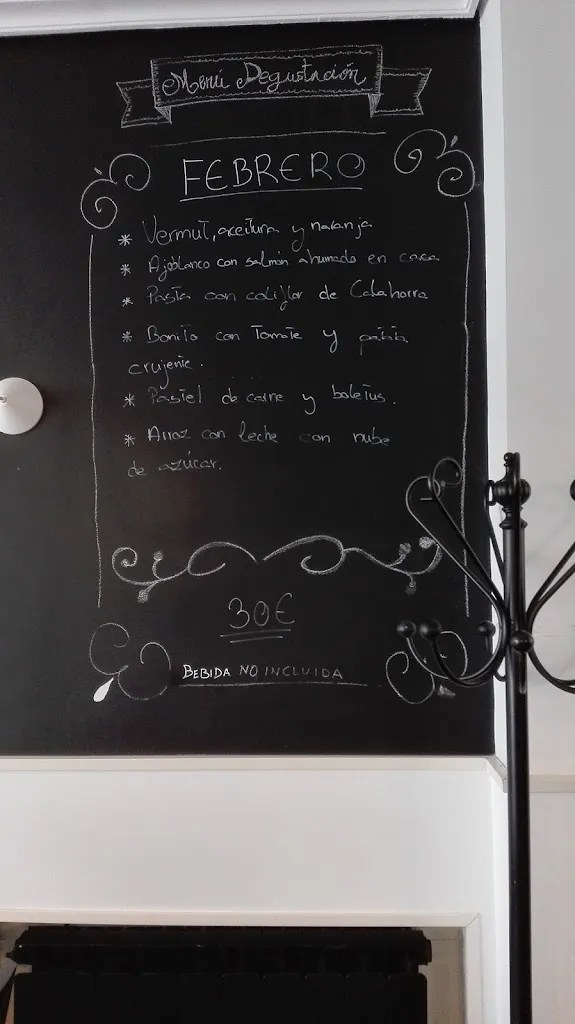 Menú Degustación
FEBRERO
* Vermut, aceituna y naranja
* Ajoblanco con salmón ahumado en casa
* Pasta con coliflor de Calahorra
* Bonito con Tomate y patata
crujiente.
* Pastel de carne y boletus.
* Arroz con leche con nube
de azúcar.
30€
BEBIDA NO INCLUIDA